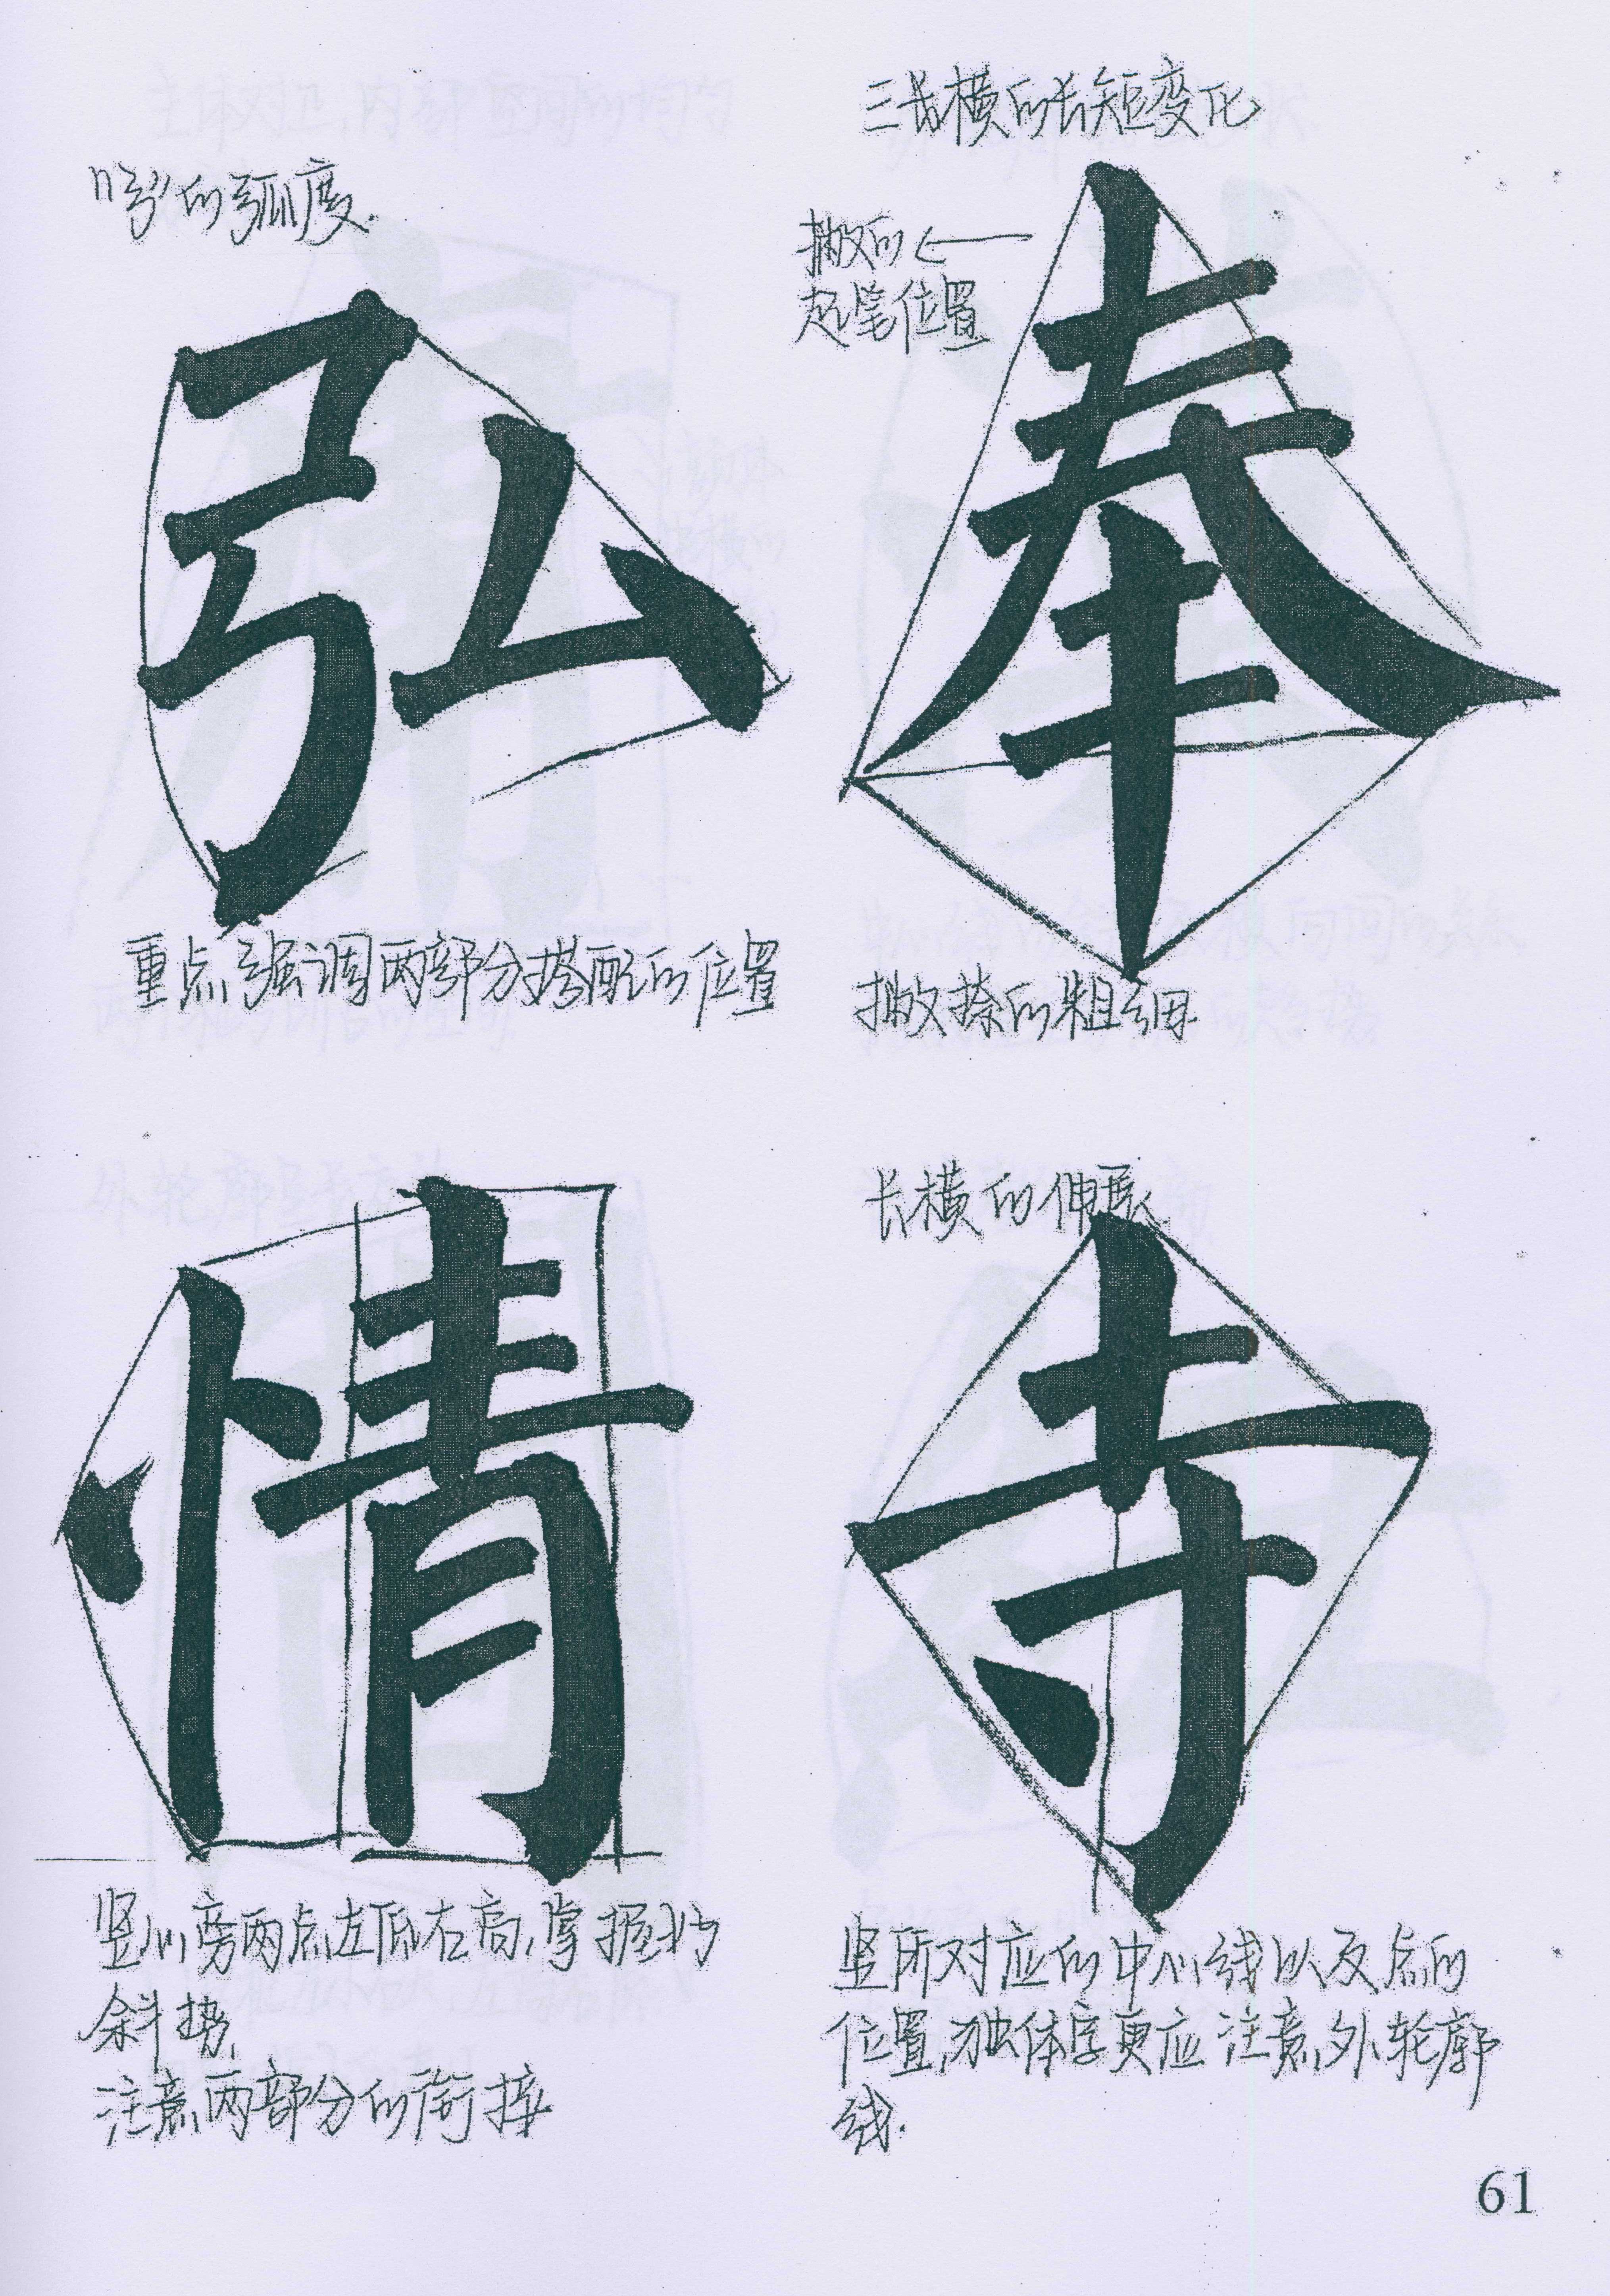 三长横的长短变化
"弓"的弧度.
撇的
起笔位置
弘
奉
重点强调两部分搭配的位置
撇捺的粗细.
长横的伸展
情
寺
竖心旁两点左低右高,掌握好
斜势,
注意两部分的衔接.
竖所对应的中心线以及点的
位置,独体字更应注意外轮廓
线.
61